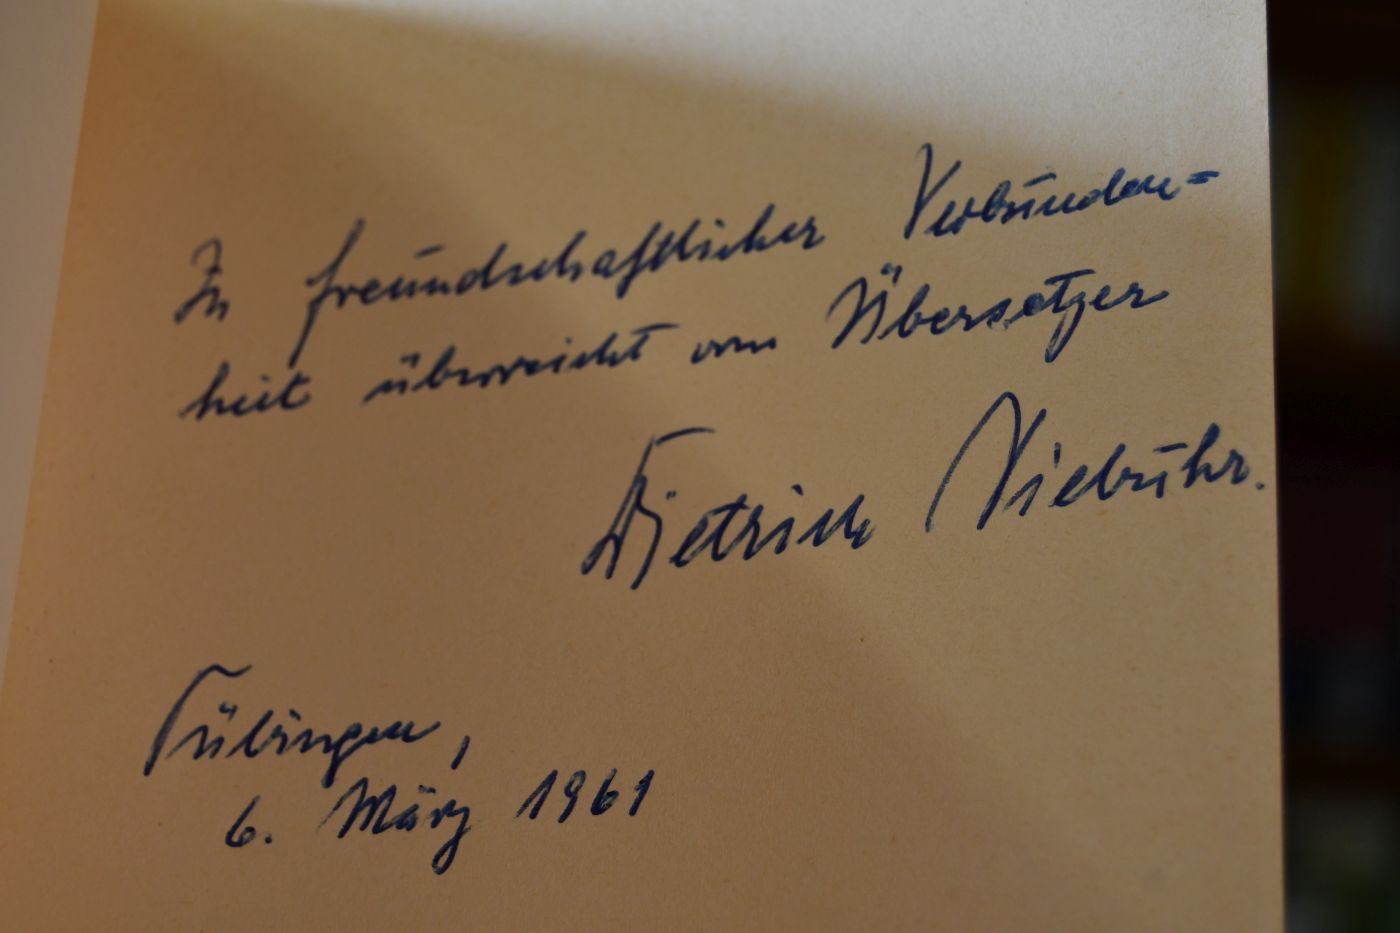 In freundschaftlicher Verbunden=
heit überreicht vom Übersetzer
Dietrich Niebuhr.
Tübingen,
6. März 1961